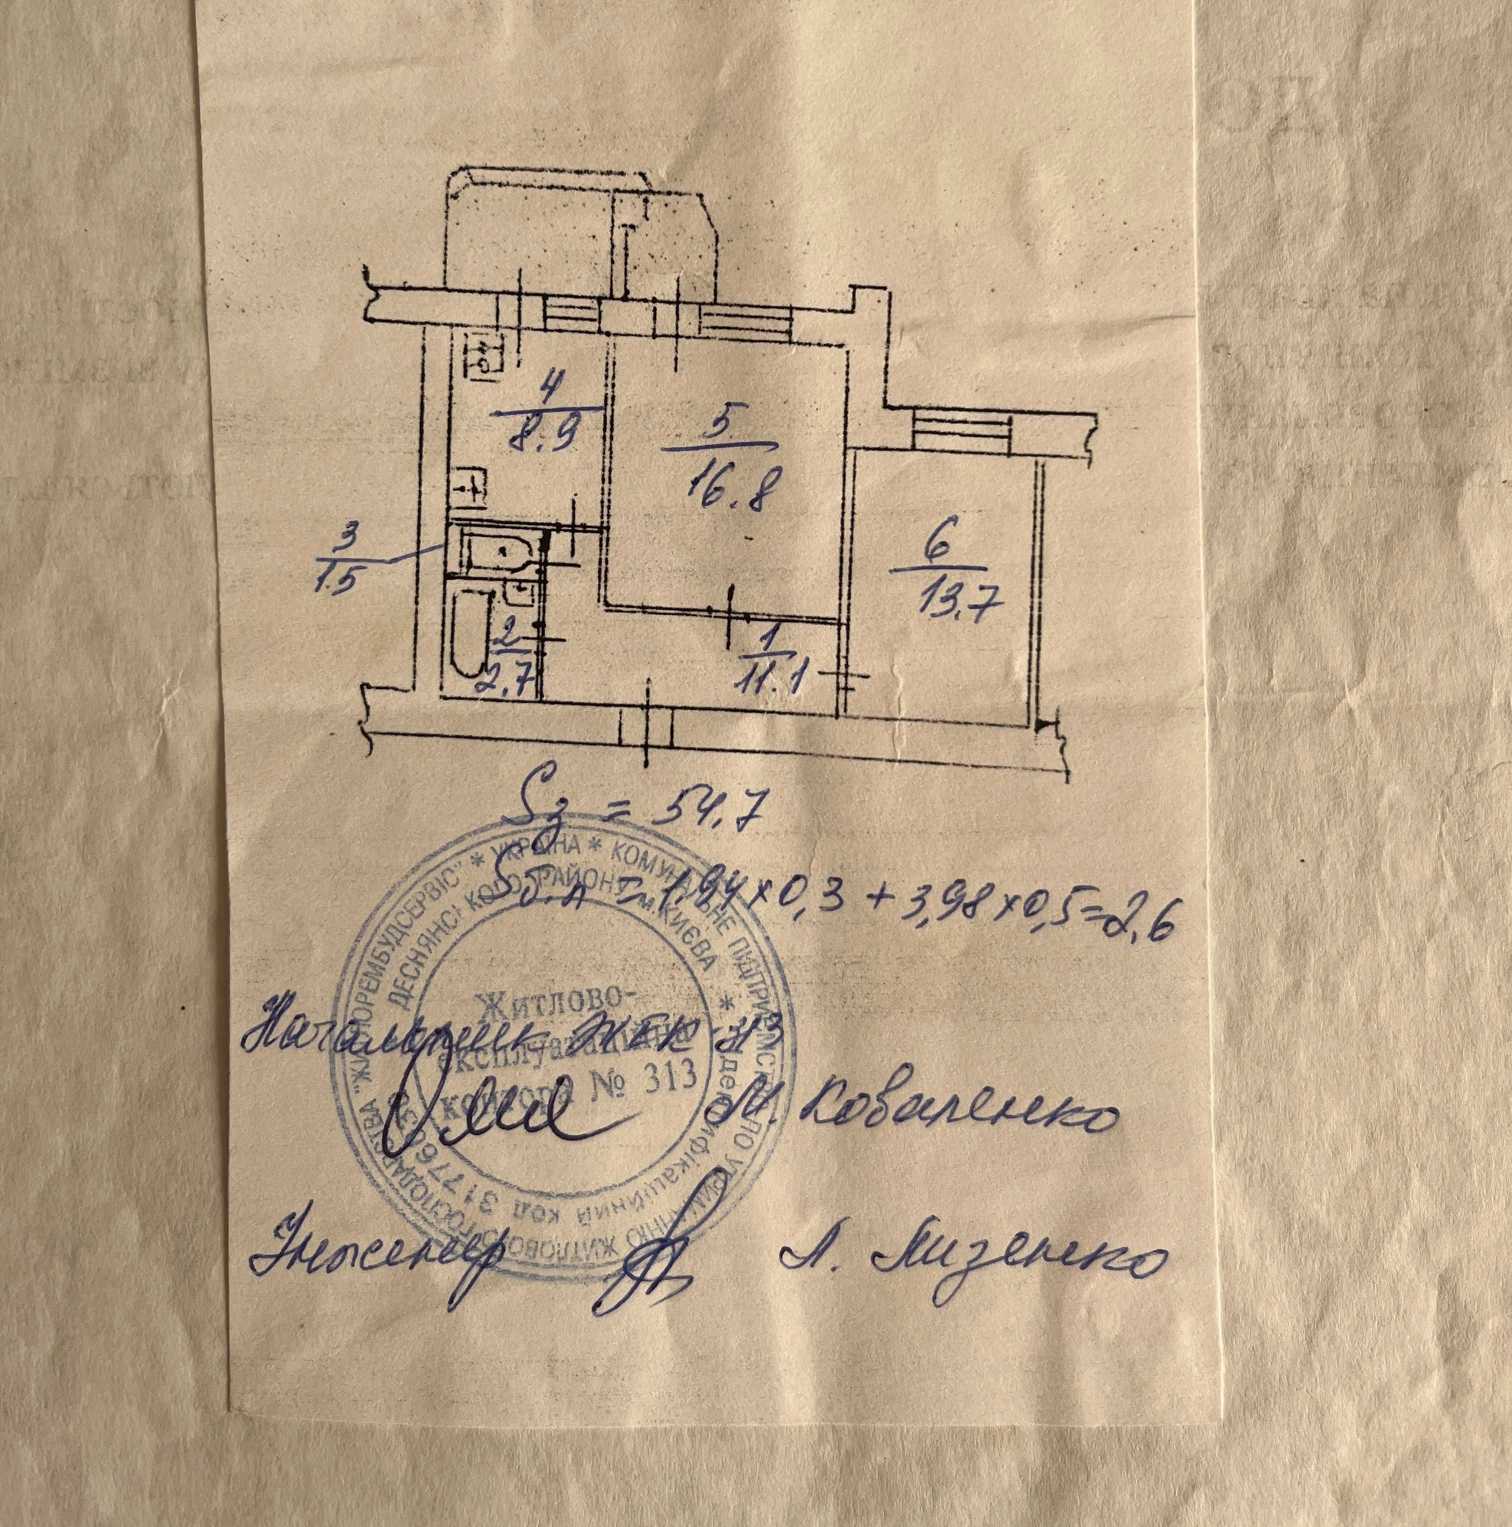 4
8.9
5
16.8
3
1.5
6
13.7
2
2.7
1
11.1
Sз = 54,7
Sб.л = 1.94×0,3 + 3,98×0,5=2,6
* УКРАЇНА * КОМУНАЛЬНЕ ПІДПРИЄМСТВО ПО УТРИМАННЮ ЖИТЛОВОГО ГОСПОДАРСТВА "ЖИТЛОРЕМБУДСЕРВІС"
ДЕСНЯНСЬКОГО РАЙОНУ м.КИЄВА * Ідентифікаційний код
Житлово-
експлуатаційна
контора № 313
Начальник ЖЕК 313
М. Коваленко
Інженер
Л. Лизенко